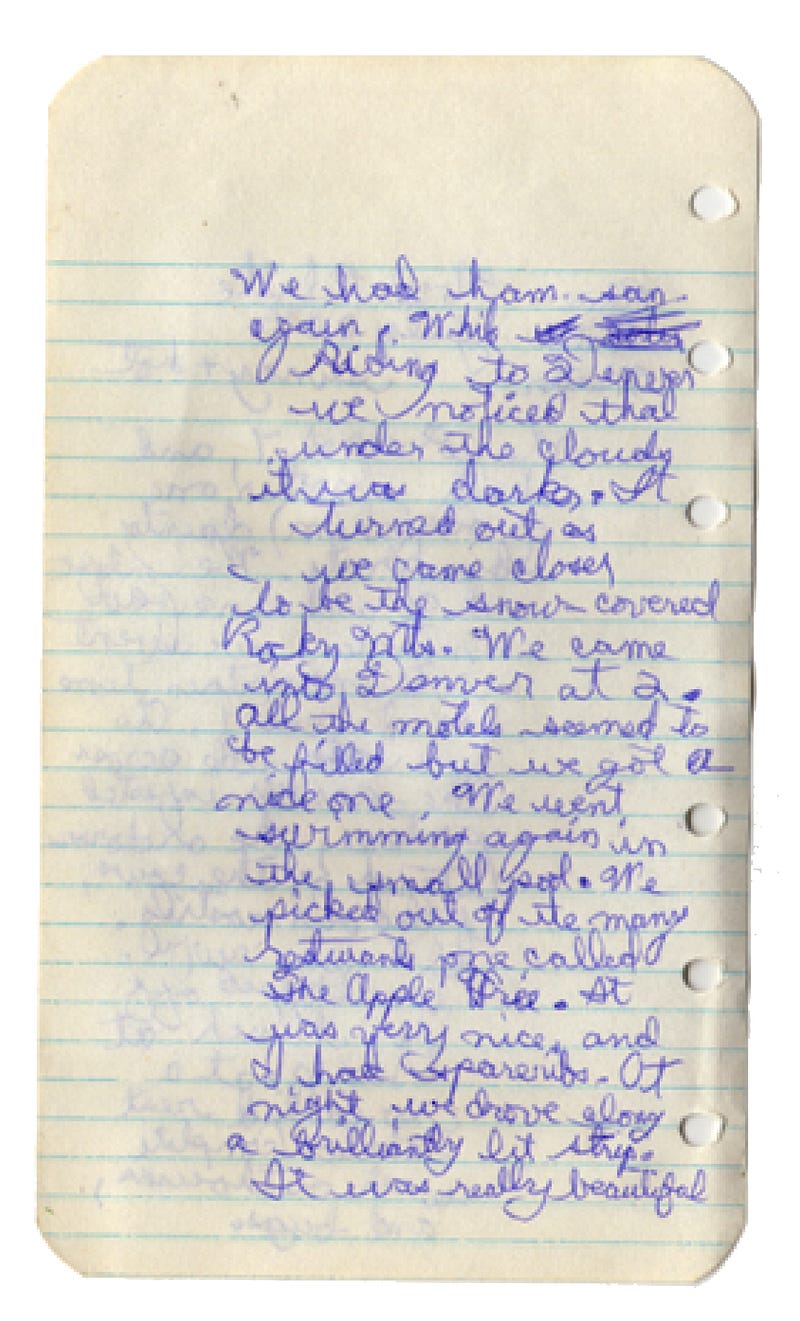 We had ham. san.
again. While
Riding to Denver
we noticed that
under the cloudy
it was dark. It
turned out, as
we came closer
to be the snow covered
Rocky Mts. We came
into Denver at 2.
All the motels seemed to
be filled but we got a
nice one. We went
swimming again in
the small pool. We
picked out of the many
resturants one called
The Apple Tree. It
was very nice, and
I had Spareribs. At
night we drove along
a brilliantly lit strip.
It was really beautiful